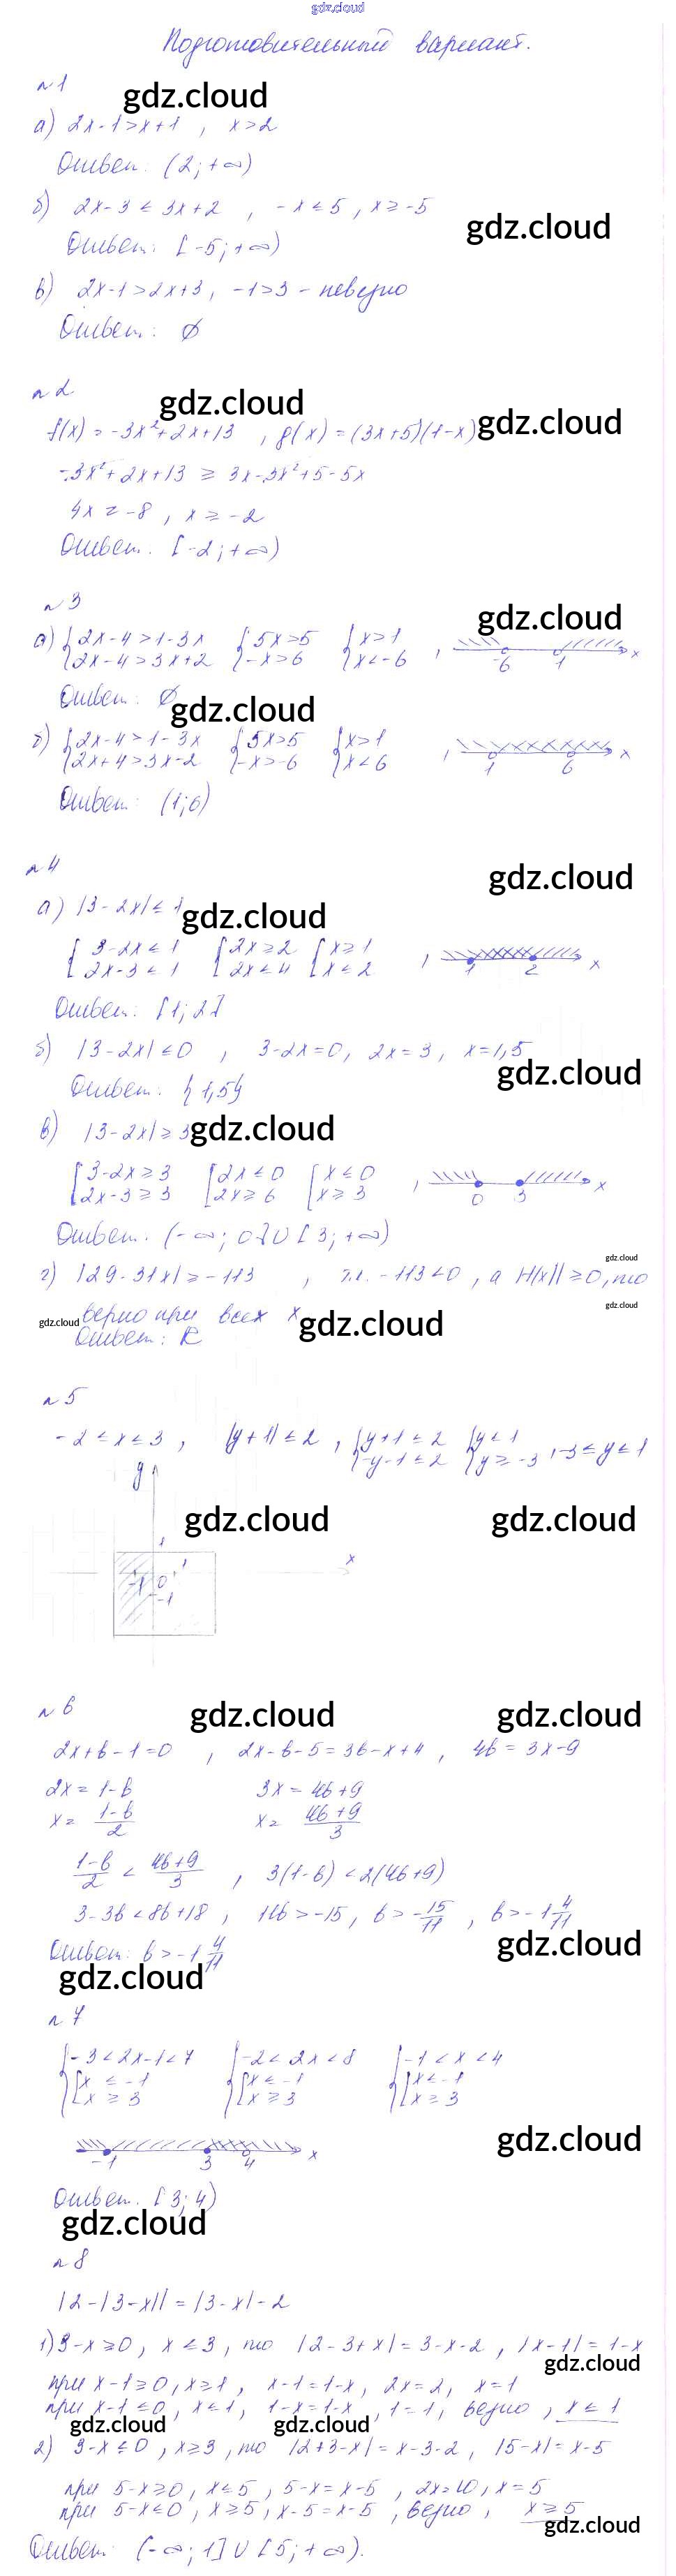 gdz.cloud
Подготовительный вариант.
№1
gdz.cloud
а) 2x-1>x+1, x>2
Ответ: (2;+∞)
б) 2x-3≤3x+2, -x≤5, x≥-5
gdz.cloud
Ответ: [-5;+∞)
в) 2x-1>2x+3, -1>3 - неверно
Ответ: ∅
№2
gdz.cloud gdz.cloud
f(x)=-3x²+2x+13, g(x)=(3x+5)(1-x)
-3x²+2x+13 ≥ 3x-3x²+5-5x
4x ≥ -8, x ≥ -2
Ответ: [-2;+∞)
№3
gdz.cloud
а) {2x-4>1-3x {5x>5 {x>1
{2x-4>3x+2 {-x>6 {x<-6, -6 1 x
Ответ: ∅
gdz.cloud
б) {2x-4>1-3x {5x>5 {x>1
{2x+4>3x-2 {-x>-6 {x<6, 1 6 x
Ответ: (1;6)
№4
gdz.cloud
а) |3-2x|≤1
gdz.cloud
{3-2x≤1 {2x≥2 {x≥1
{2x-3≤1 {2x≤4 {x≤2, 1 2 x
Ответ: [1;2]
б) |3-2x|≤0, 3-2x=0, 2x=3, x=1,5
gdz.cloud
Ответ: {1,5}
в) |3-2x|≥3
gdz.cloud
[3-2x≥3 [2x≤0 [x≤0
[2x-3≥3 [2x≥6 [x≥3, 0 3 x
Ответ: (-∞;0]∪[3;+∞)
gdz.cloud
г) |29-31x|≥-113, т.к. -113<0, а |f(x)|≥0, то
gdz.cloud
верно при всех x
gdz.cloud gdz.cloud
Ответ: R
№5
-2≤x≤3, |y+1|≤2, {y+1≤2 {y≤1
{-y-1≤2 {y≥-3, -3≤y≤1
y
gdz.cloud gdz.cloud
1
x
-1 0 1
-1
№6
gdz.cloud gdz.cloud
2x+b-1=0, 2x-b-5=3b-x+4, 4b=3x-9
2x=1-b 3x=4b+9
x=(1-b)/2 x=(4b+9)/3
(1-b)/2 < (4b+9)/3, 3(1-b)<2(4b+9)
3-3b<8b+18, 11b>-15, b>-15/11, b>-1 4/11
gdz.cloud
Ответ: b>-1 4/11
gdz.cloud
№7
{-3<2x-1<7 {-2<2x<8 {-1<x<4
{[x≤-1 {[x≤-1 {[x≤-1
[x≥3 [x≥3 [x≥3
gdz.cloud
-1 3 4 x
Ответ: [3;4)
gdz.cloud
№8
|2-|3-x||=|3-x|-2
1) 3-x≥0, x≤3, то |2-3+x|=3-x-2, |x-1|=1-x
gdz.cloud
при x-1≥0, x≥1, x-1=1-x, 2x=2, x=1
при x-1≤0, x≤1, 1-x=1-x, 1=1, верно, x≤1
gdz.cloud gdz.cloud
2) 3-x≤0, x≥3, то |2+3-x|=x-3-2, |5-x|=x-5
при 5-x≥0, x≤5, 5-x=x-5, 2x=10, x=5
при 5-x≤0, x≥5, x-5=x-5, верно, x≥5
gdz.cloud
Ответ: (-∞;1]∪[5;+∞).